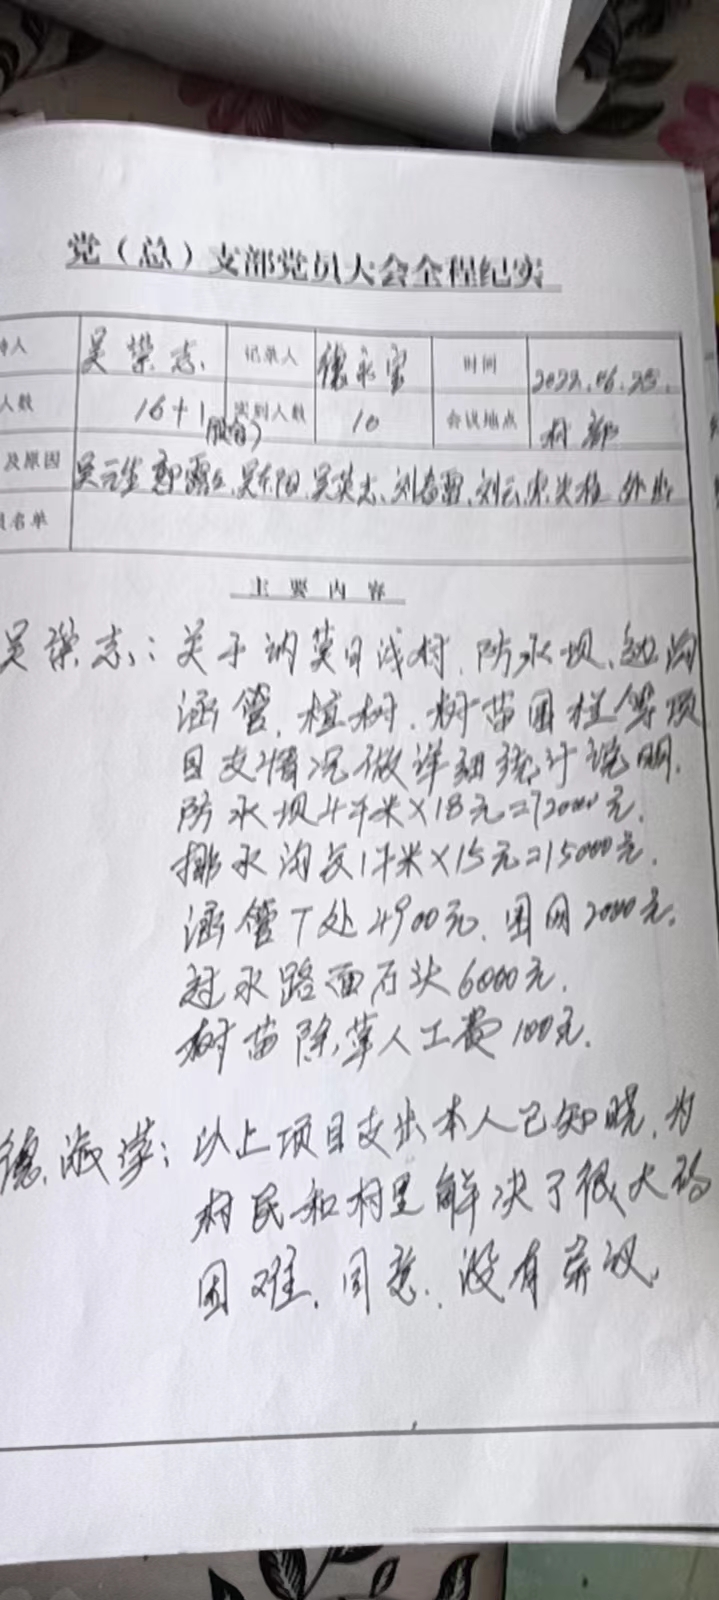 党（总）支部党员大会全程纪实
持人 吴荣志 记录人 德永宝 时间 2022.06.25.
人数 16+1 实到人数 10 会议地点 村部
及原因 吴元生 郭 吴东阳、吴英杰、刘春雷、刘云 外出
员名单
主要内容
吴荣志：关于讷莫日浅村、防水坝、边沟
涵管、植树、树苗围栏等项
目支情况做详细统计说明.
防水坝4千米×18元=72000元.
排水沟 1千米×15元=15000元.
涵管丁处4900元、围网2000元.
过水路面石头6000元.
树苗除草人工费100元.
德淑 ：以上项目支出本人已知晓，为
村民和村里解决了很大的
困难、同意、没有异议.